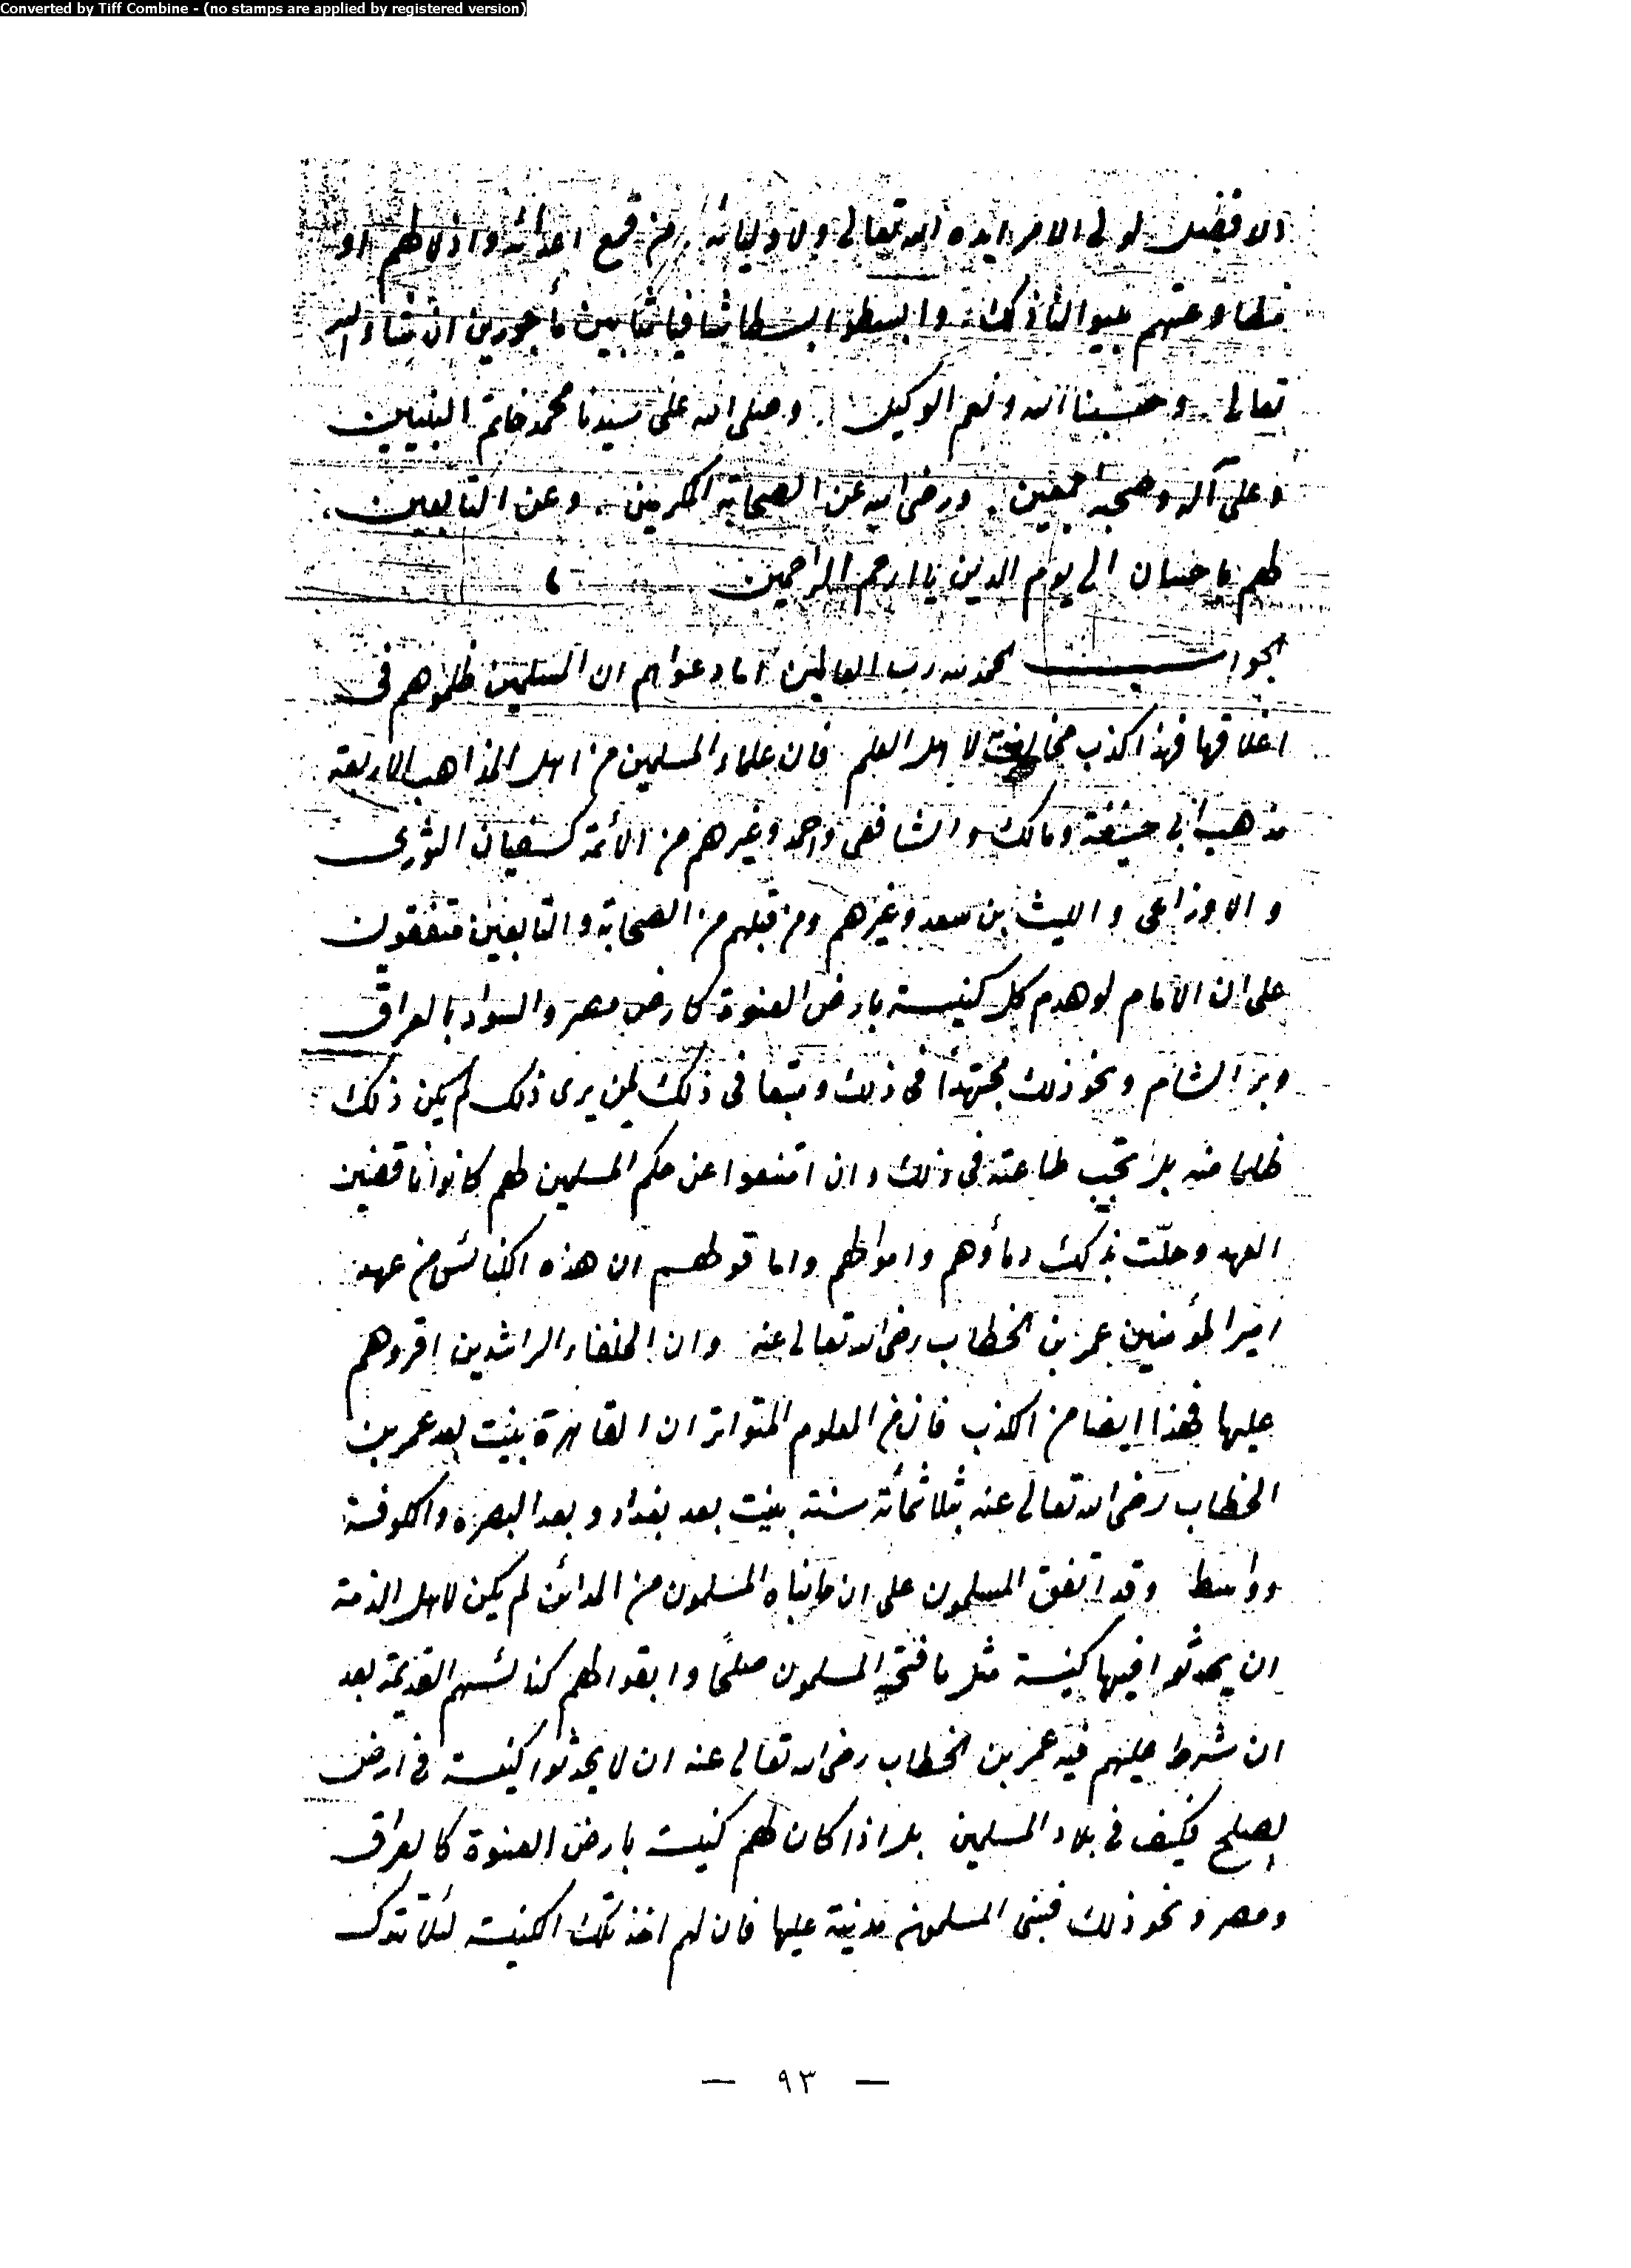 Converted by Tiff Combine - (no stamps are applied by registered version)
الافضل لولي الامر ايده الله تعالى ولاوليائه من قمع اعدائه واذلالهم او
مطاوعتهم بينوا لنا ذلك وابسطوا بسطا شافيا مثابين مأجورين ان شاء الله
تعالى وحسبنا الله ونعم الوكيل وصلى الله على سيدنا محمد خاتم النبيين
وعلى آله وصحبه اجمعين . ورضى الله عن الصحابة المكرمين . وعن التابعين
لهم باحسان الى يوم الدين يا ارحم الراحمين
الجواب الحمد لله رب العالمين اما دعواهم ان المسلمين ظلموهم فى
اغلاقها فهذا كذب مخالف لاهل العلم فان علماء المسلمين من اهل المذاهب الاربعة
مذهب ابى حنيفة ومالك والشافعى واحمد وغيرهم من الائمة كسفيان الثورى
والاوزاعى والليث بن سعد وغيرهم ومن قبلهم من الصحابة والتابعين متفقون
على ان الامام لو هدم كل كنيسة بارض العنوة كارض مصر والسواد بالعراق
وبر الشام ونحو ذلك مجتهدا فى ذلك ومتبعا فى ذلك لمن يرى ذلك لم يكن ذلك
ظلما منه بل تجب طاعته فى ذلك وان امتنعوا عن حكم المسلمين لهم كانوا ناقضين
العهد وحلّت بذلك دماؤهم واموالهم واما قولهم ان هذه الكنائس من عهد
امير المؤمنين عمر بن الخطاب رضى الله تعالى عنه وان الخلفاء الراشدين اقروهم
عليها فهذا ايضا من الكذب فان من المعلوم المتواتر ان القاهرة بنيت بعد عمر بن
الخطاب رضى الله تعالى عنه بثلاثمائة سنة بنيت بعد بغداد وبعد البصرة والكوفة
وواسط وقد اتفق المسلمون على ان ما بناه المسلمون من المدائن لم يكن لاهل الذمة
ان يحدثوا فيها كنيسة مثل ما فتحه المسلمون صلحًا وابقوا لهم كنائسهم القديمة بعد
ان شرط عليهم فيه عمر بن الخطاب رضى الله تعالى عنه ان لا يحدثوا كنيسة فى ارض
الصلح فكيف فى بلاد المسلمين بل اذا كان لهم كنيسة بارض العنوة كالعراق
ومصر ونحو ذلك فبنى المسلمون مدينة عليها فان لهم اخذ تلك الكنيسة لئلا تترك
— ٩٣ —